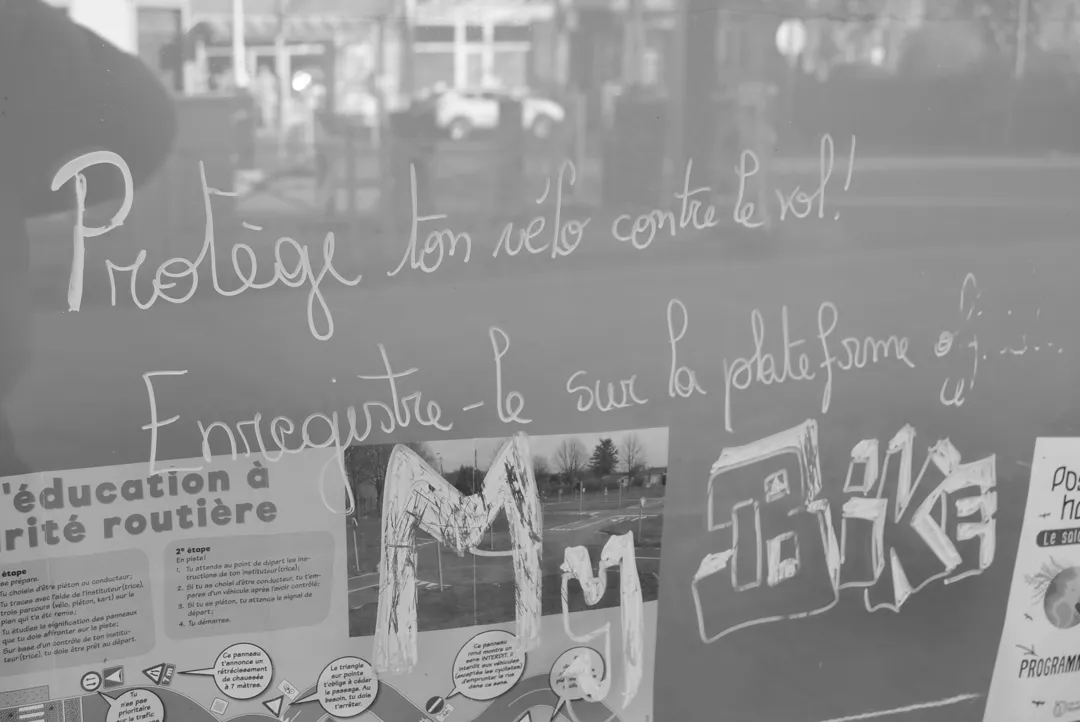 Protège ton vélo contre le vol!
Enregistre-le sur la plateforme
My Bike
l'éducation à
rité routière
étape
se prépare.
Tu choisis d'être piéton ou conducteur;
Tu traces avec l'aide de l'instituteur(trice),
trois parcours (vélo, piéton, kart) sur le
plan qui t'a été remis;
Tu étudies la signification des panneaux
que tu dois affronter sur la piste;
Sur base d'un contrôle de ton institu-
teur(trice), tu dois être prêt au départ.
2e étape
En piste!
1. Tu attends au point de départ les ins-
tructions de ton instituteur(trice);
2. Si tu as choisi d'être conducteur, tu t'em-
pares d'un véhicule après l'avoir contrôlé;
3. Si tu es piéton, tu attends le signal de
départ;
4. Tu démarres.
Ce panneau
t'annonce un
rétrécissement
de chaussée
à 7 mètres.
Le triangle
sur pointe
t'oblige à céder
le passage. Au
besoin, tu dois
t'arrêter.
Ce panneau
rond montre un
sens INTERDIT. Il
interdit aux véhicules
(exceptés les cyclistes)
d'emprunter la rue
dans ce sens.
Tu
n'es pas
prioritaire
sur le trafic
Le salo
PROGRAMM